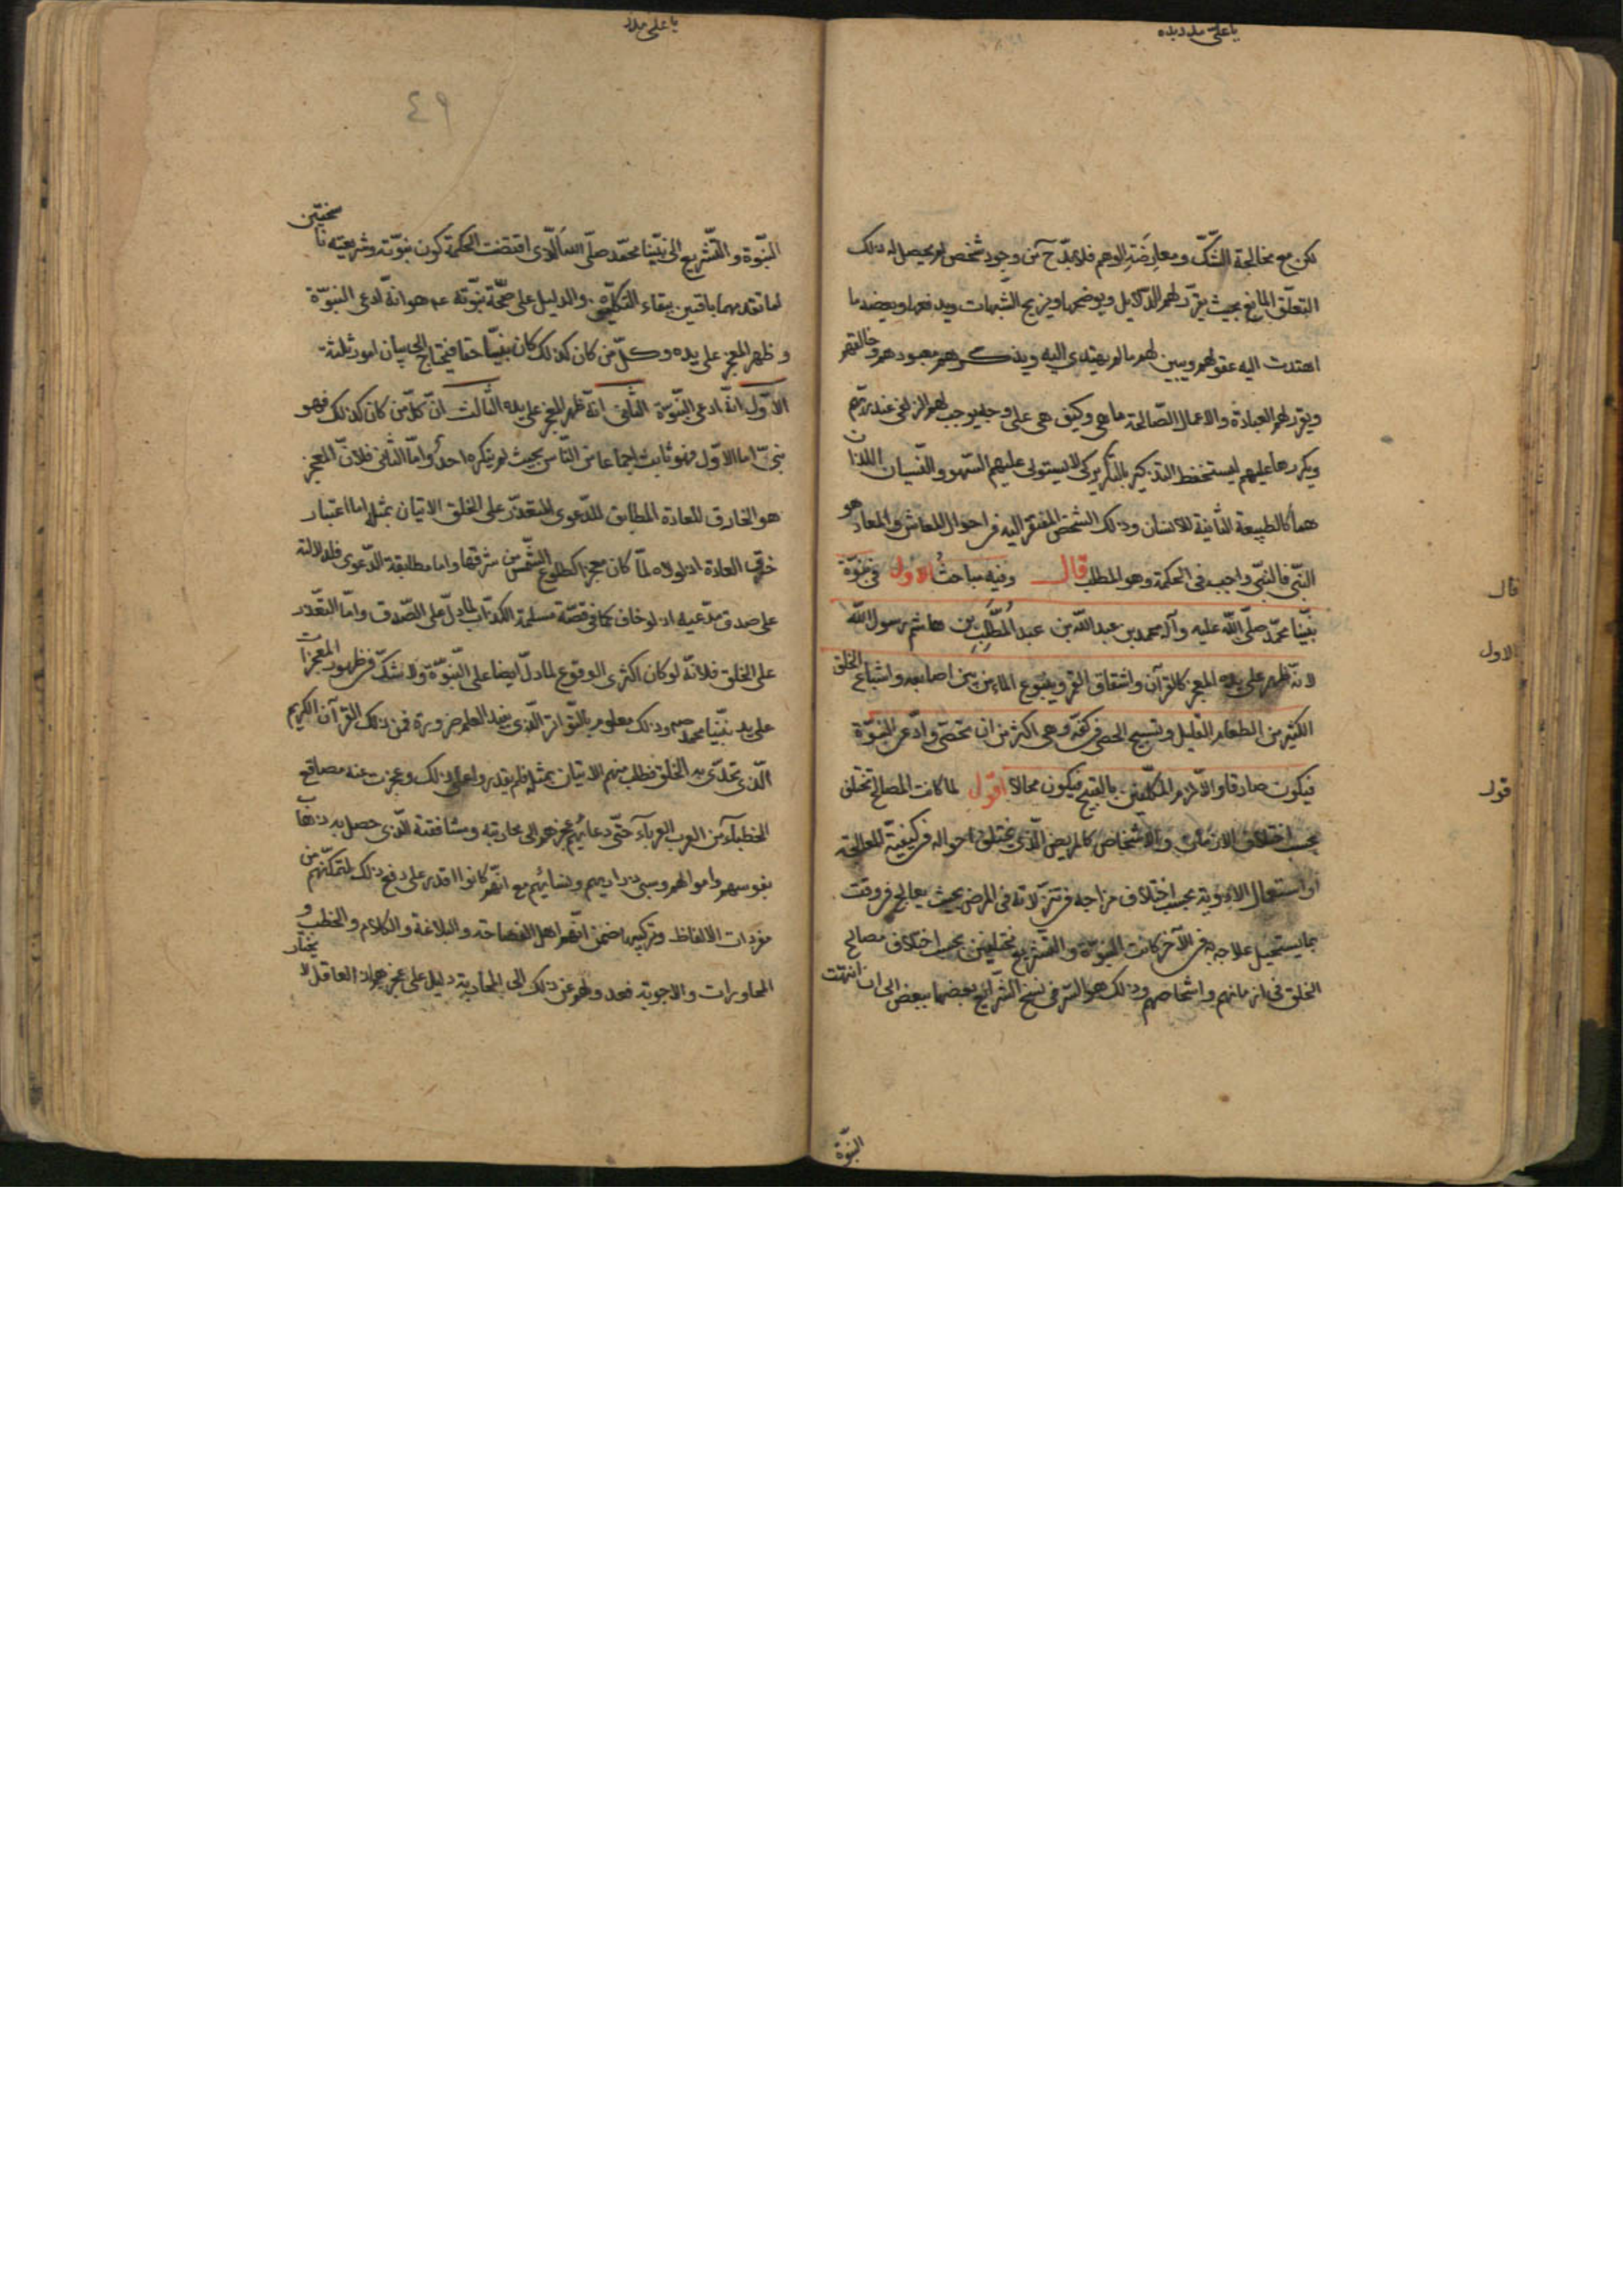 يا علي مدد
لكن مع مخالجة الشكّ ومعارضة الوهم فلا بدّ ح من وجود شخص لم يحصل له ذلك
التعلّق المانع بحيث يقرّر لهم الدلايل ويوضحها ويزيح الشبهات ويدفعها ويعضد ما
اهتدت اليه عقولهم ويبين لهم ما لم يهتدي اليه ويذكرهم معبودهم وخالقهم
ويقرر لهم العبادة والاعمال الصّالحة ما هي وكيف هي على وجه يوجب لهم الزلفى عند ربّهم
ويكررها عليهم ليستحفظ التذكير بالتكرير كى لا يستولى عليهم السّهو والنّسيان اللذان
هما كالطبيعة الثّانية للانسان وذلك الشّخص المفتقر اليه في احوال المعاش والمعاد هو
النبّي فالنبّي واجب فى الحكمة وهو المطلب قال وفيه مباحث الاول فى نبوّة
نبيّنا محمّد صلّى الله عليه وآله محمد بن عبد الله بن عبد المُطّلِب بن هاشم رسول الله
لانّه ظهر على يده المعجز كالقرآن وانشقاق القمر وينبوع الماء من بين اصابعه واشباع الخلق
الكثير من الطعام القليل وتسبيح الحصى في كفّه وهى اكثر من ان تحصى وادّعى النبوّة
فيكون صادقا والّا لزم اغراء المكلّفين بالقبيح فيكون محالا اقول لما كانت المصالح تختلف
بحسب اختلاف الازمان والاشخاص كالمريض الّذى تختلف احواله في كيفيّة المعالجة
او استعمال الادوية بحسب اختلاف مزاجه في تنزّلاته فى المرض بحيث يعالج في وقت
بما يستحيل علاجه به في الآخر كانت النبوّة والتشريع مختلفين بحسب اختلاف مصالح
الخلق فى ازمانهم واشخاصهم وذلك هو السّر فى نسخ الشّرائع بعضها ببعض الى ان انتهت
قال
الاول
قول
النبوّة
يا علي مدد
٤٩
النبّوة والتّشريع الى نبيّنا محمّد صلّى الله الّذى اقتضت الحكمة كون نبوّته وشريعته ناسختين
لما تقدمهما باقيين ببقاء التكليف والدليل على صحّة نبوّته عم هو انّه ادعى النبوّة
وظهر المعجز على يده وكلّ من كان كذلك كان نبيّا حقا فيحتاج الى بيان امور ثلثة
الاوّل انّه ادعى النبّوة الثّانى انّه ظهر المعجز على يده الثّالث انّ كلّ من كان كذلك فهو
نبىّ اما الاوّل فهو ثابت اجماعا من النّاس بحيث لم ينكره احد وامّا الثّانى فلانّ المعجز
هو الخارق للعادة المطابق للدّعوى المتعذّر على الخلق الاتيان بمثله اما اعتبار
خرق العادة اذ لولاه لمّا كان معجزا كطلوع الشّمس من مشرقها واما مطابقة الدّعوى فلدلالته
على صدق مدّعيه اذ لو خالف كما فى قصّة مسلمة الكذّاب لما دلّ على الصّدق وامّا التعّذر
على الخلق فلانّه لو كان اكثرى الوقوع لما دلّ ايضا على النّبوّة ولا شكّ في ظهور المعجزات
على يد نبيّنا محمد ص وذلك معلوم بالتّواتر الّذى يفيد العلم ضرورة فمن ذلك القرآن الكريم
الّذى تحدّى به الخلق فطلب منهم الاتيان بمثله فلم يقدروا على ذلك وعجزت عنه مصاقع
الخطباء من العرب العرباء حتّى دعاهم عجزهم الى محاربته ومسايفته الّذى حصل به ذهاب
نفوسهم واموالهم وسبى ذراريهم ونسائهم مع انّهم كانوا اقدر على دفع ذلك لتمكّنهم من
مفردات الالفاظ وتركيبها ضمن انّهم اهل الفصاحة والبلاغة والكلام والخطب و
المحاورات والاجوبة فعدولهم عن ذلك الى المحاربة دليل على عجزهم اذ العاقل لا يختار